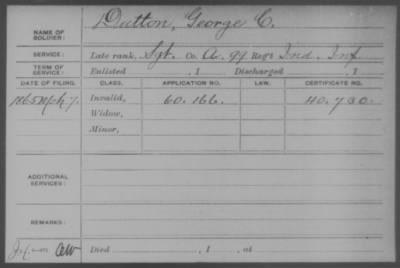 NAME OF SOLDIER: Dutton, George C.
SERVICE: Late rank, Sgt. Co. A. 99 Reg't Ind. Inf
TERM OF SERVICE: Enlisted , 1 Discharged , 1
DATE OF FILING. CLASS. APPLICATION NO. LAW. CERTIFICATE NO.
1865 Mch 7. Invalid, 60.166. 40.730.
Widow,
Minor,
ADDITIONAL SERVICES:
REMARKS:
Died , 1 , at